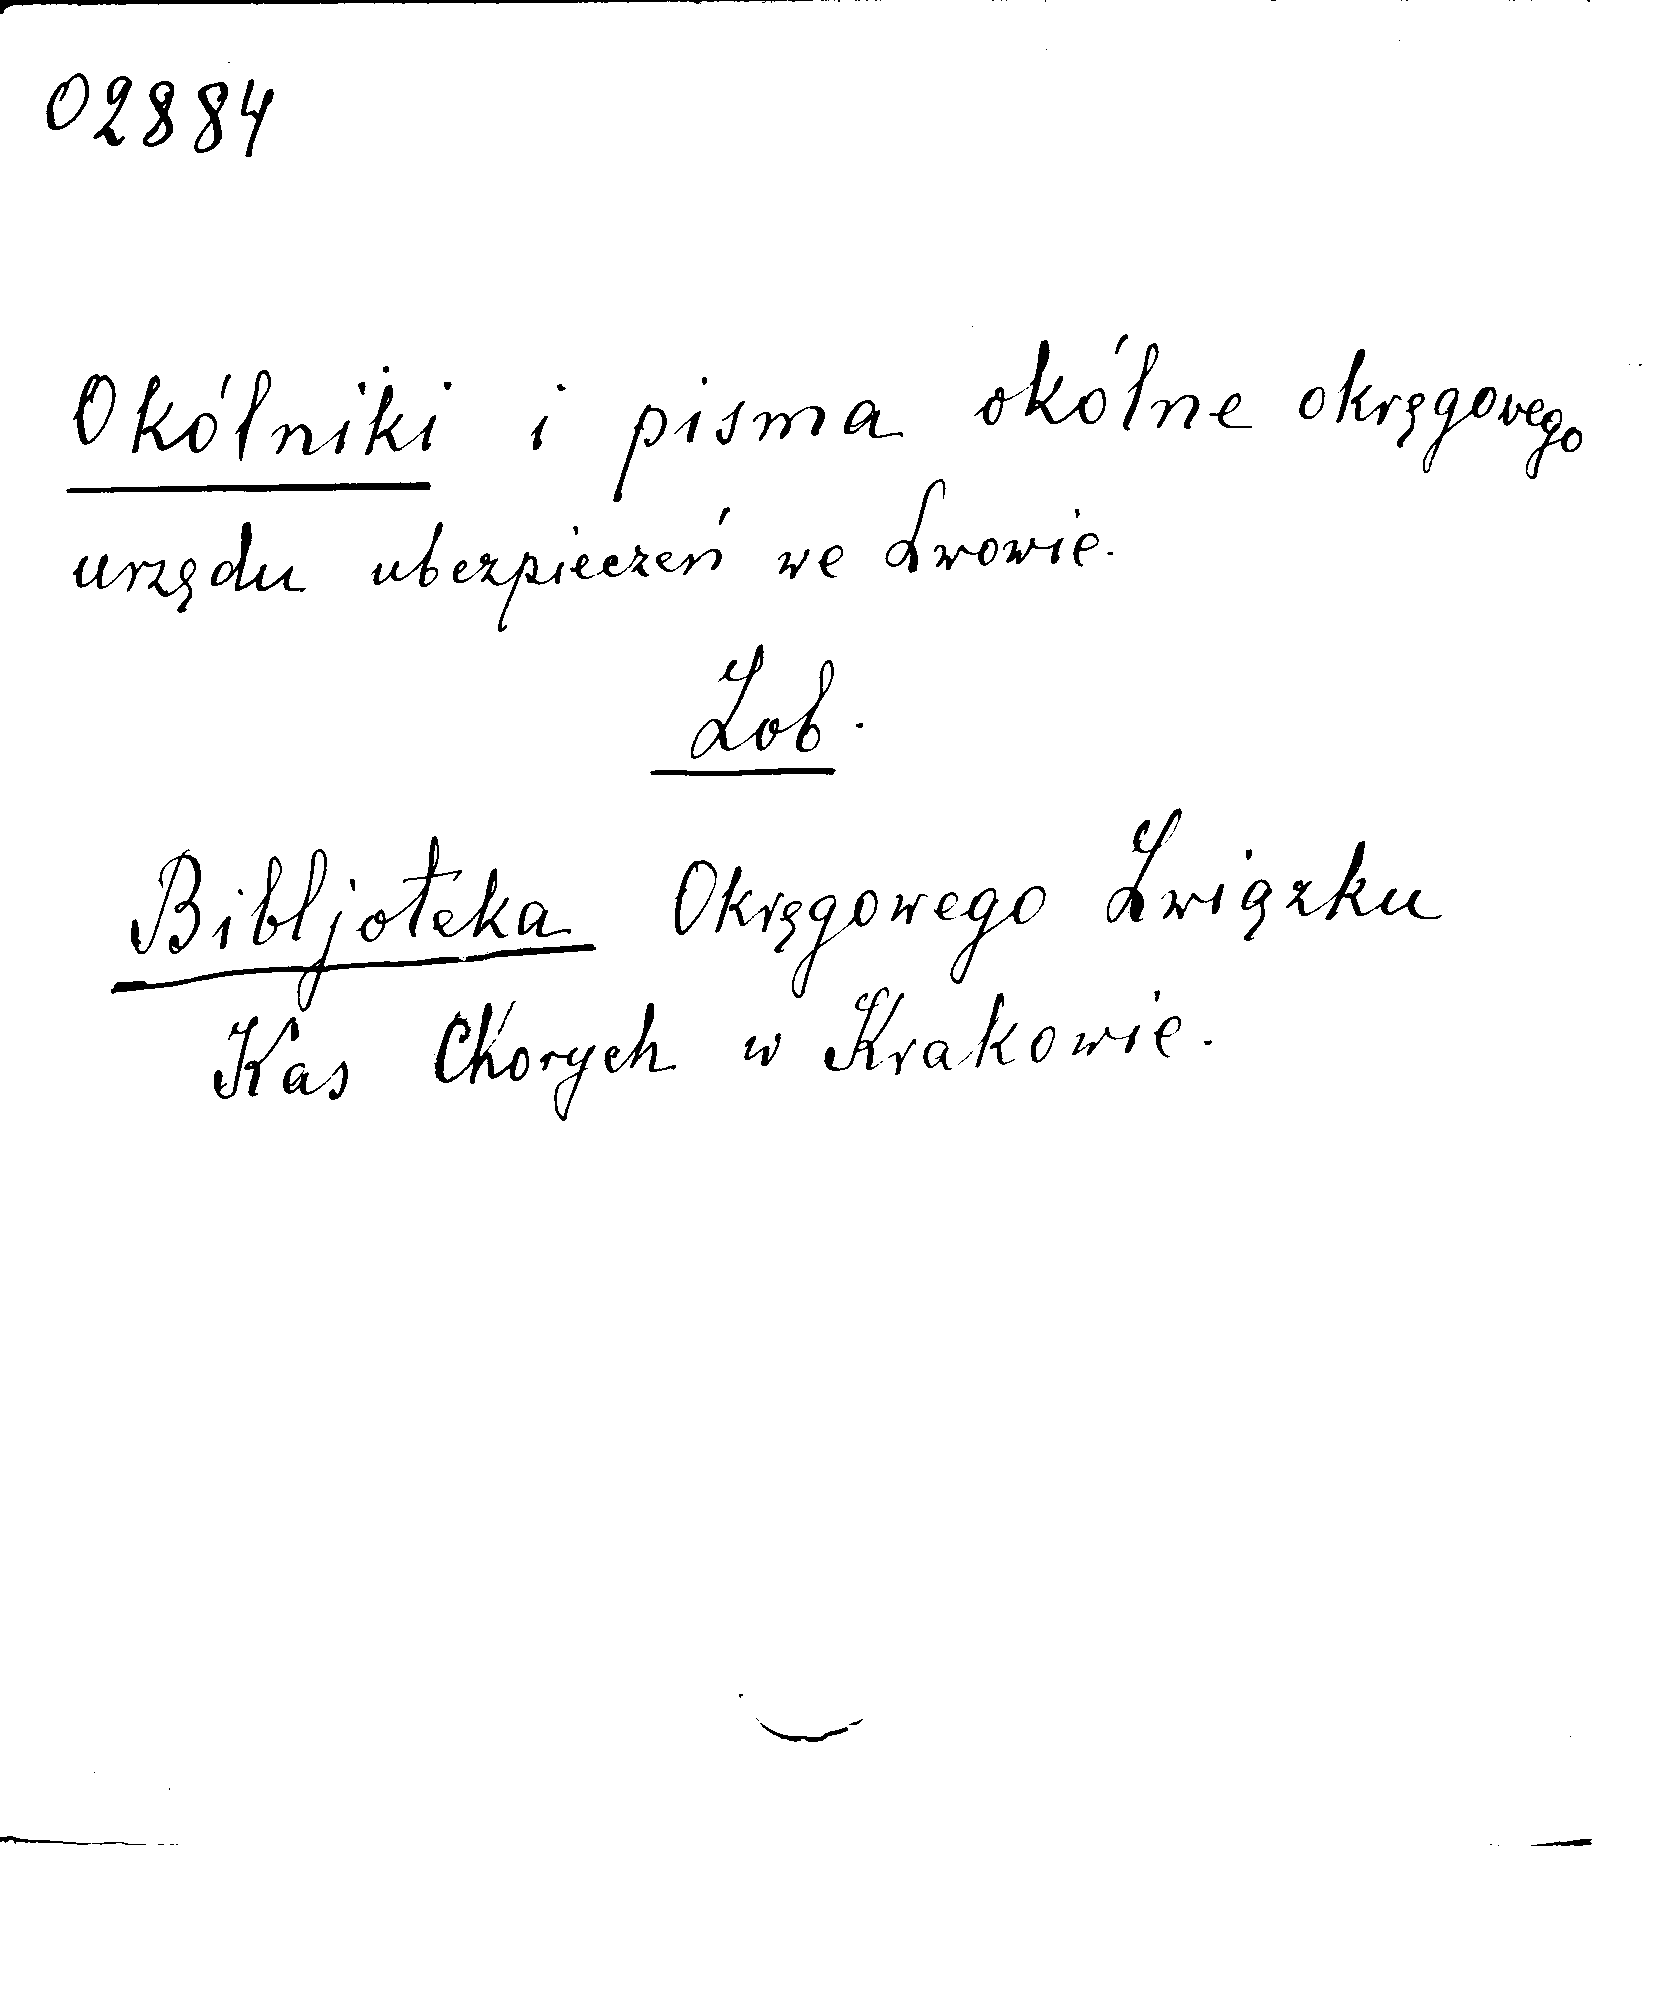 02884
Okólniki i pisma okólne okręgowego
urzędu ubezpieczeń we Lwowie.
Zob.
Bibljoteka Okręgowego Związku
Kas Chorych w Krakowie.